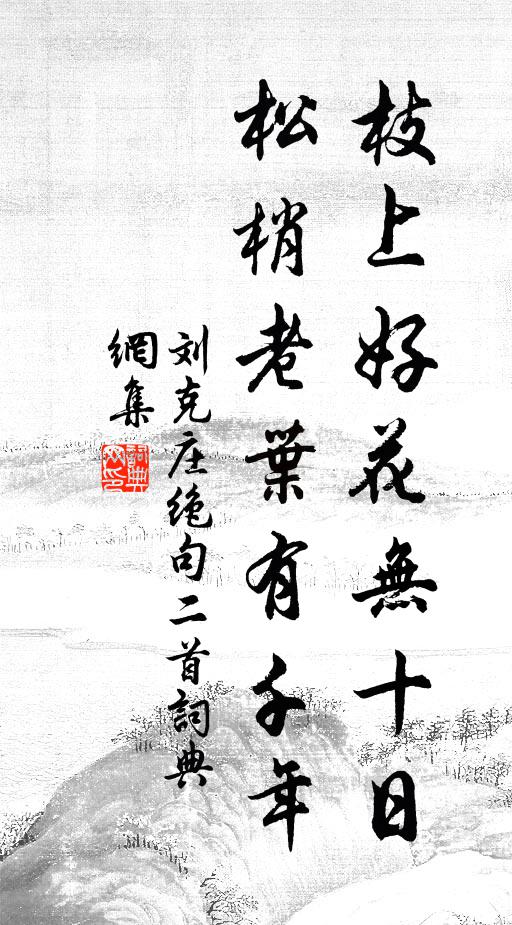 枝上好花無十日
松梢老葉有千年
刘克庄绝句二首詞典
網集
詞典
网印